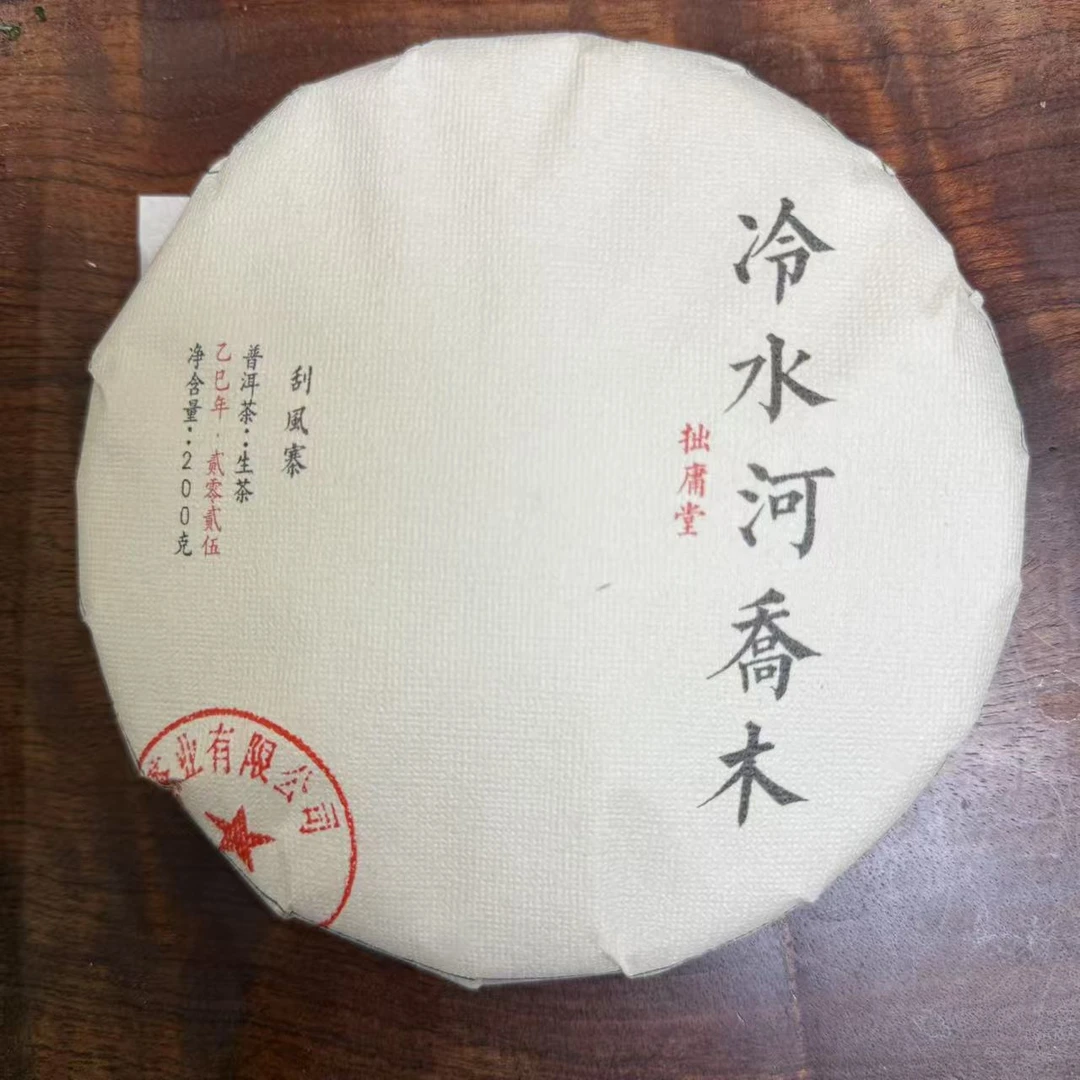 冷水河喬木
拙庸堂
刮風寨
普洱茶:生茶
乙巳年·貳零貳伍
净含量:200克
业有限公司